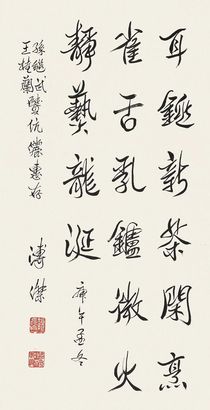 耳鐺新茶閑烹
雀舌乳鑪微火
靜爇龍涎
庚午孟冬
孫繼武
王蘭
賢伉儷惠存
溥傑